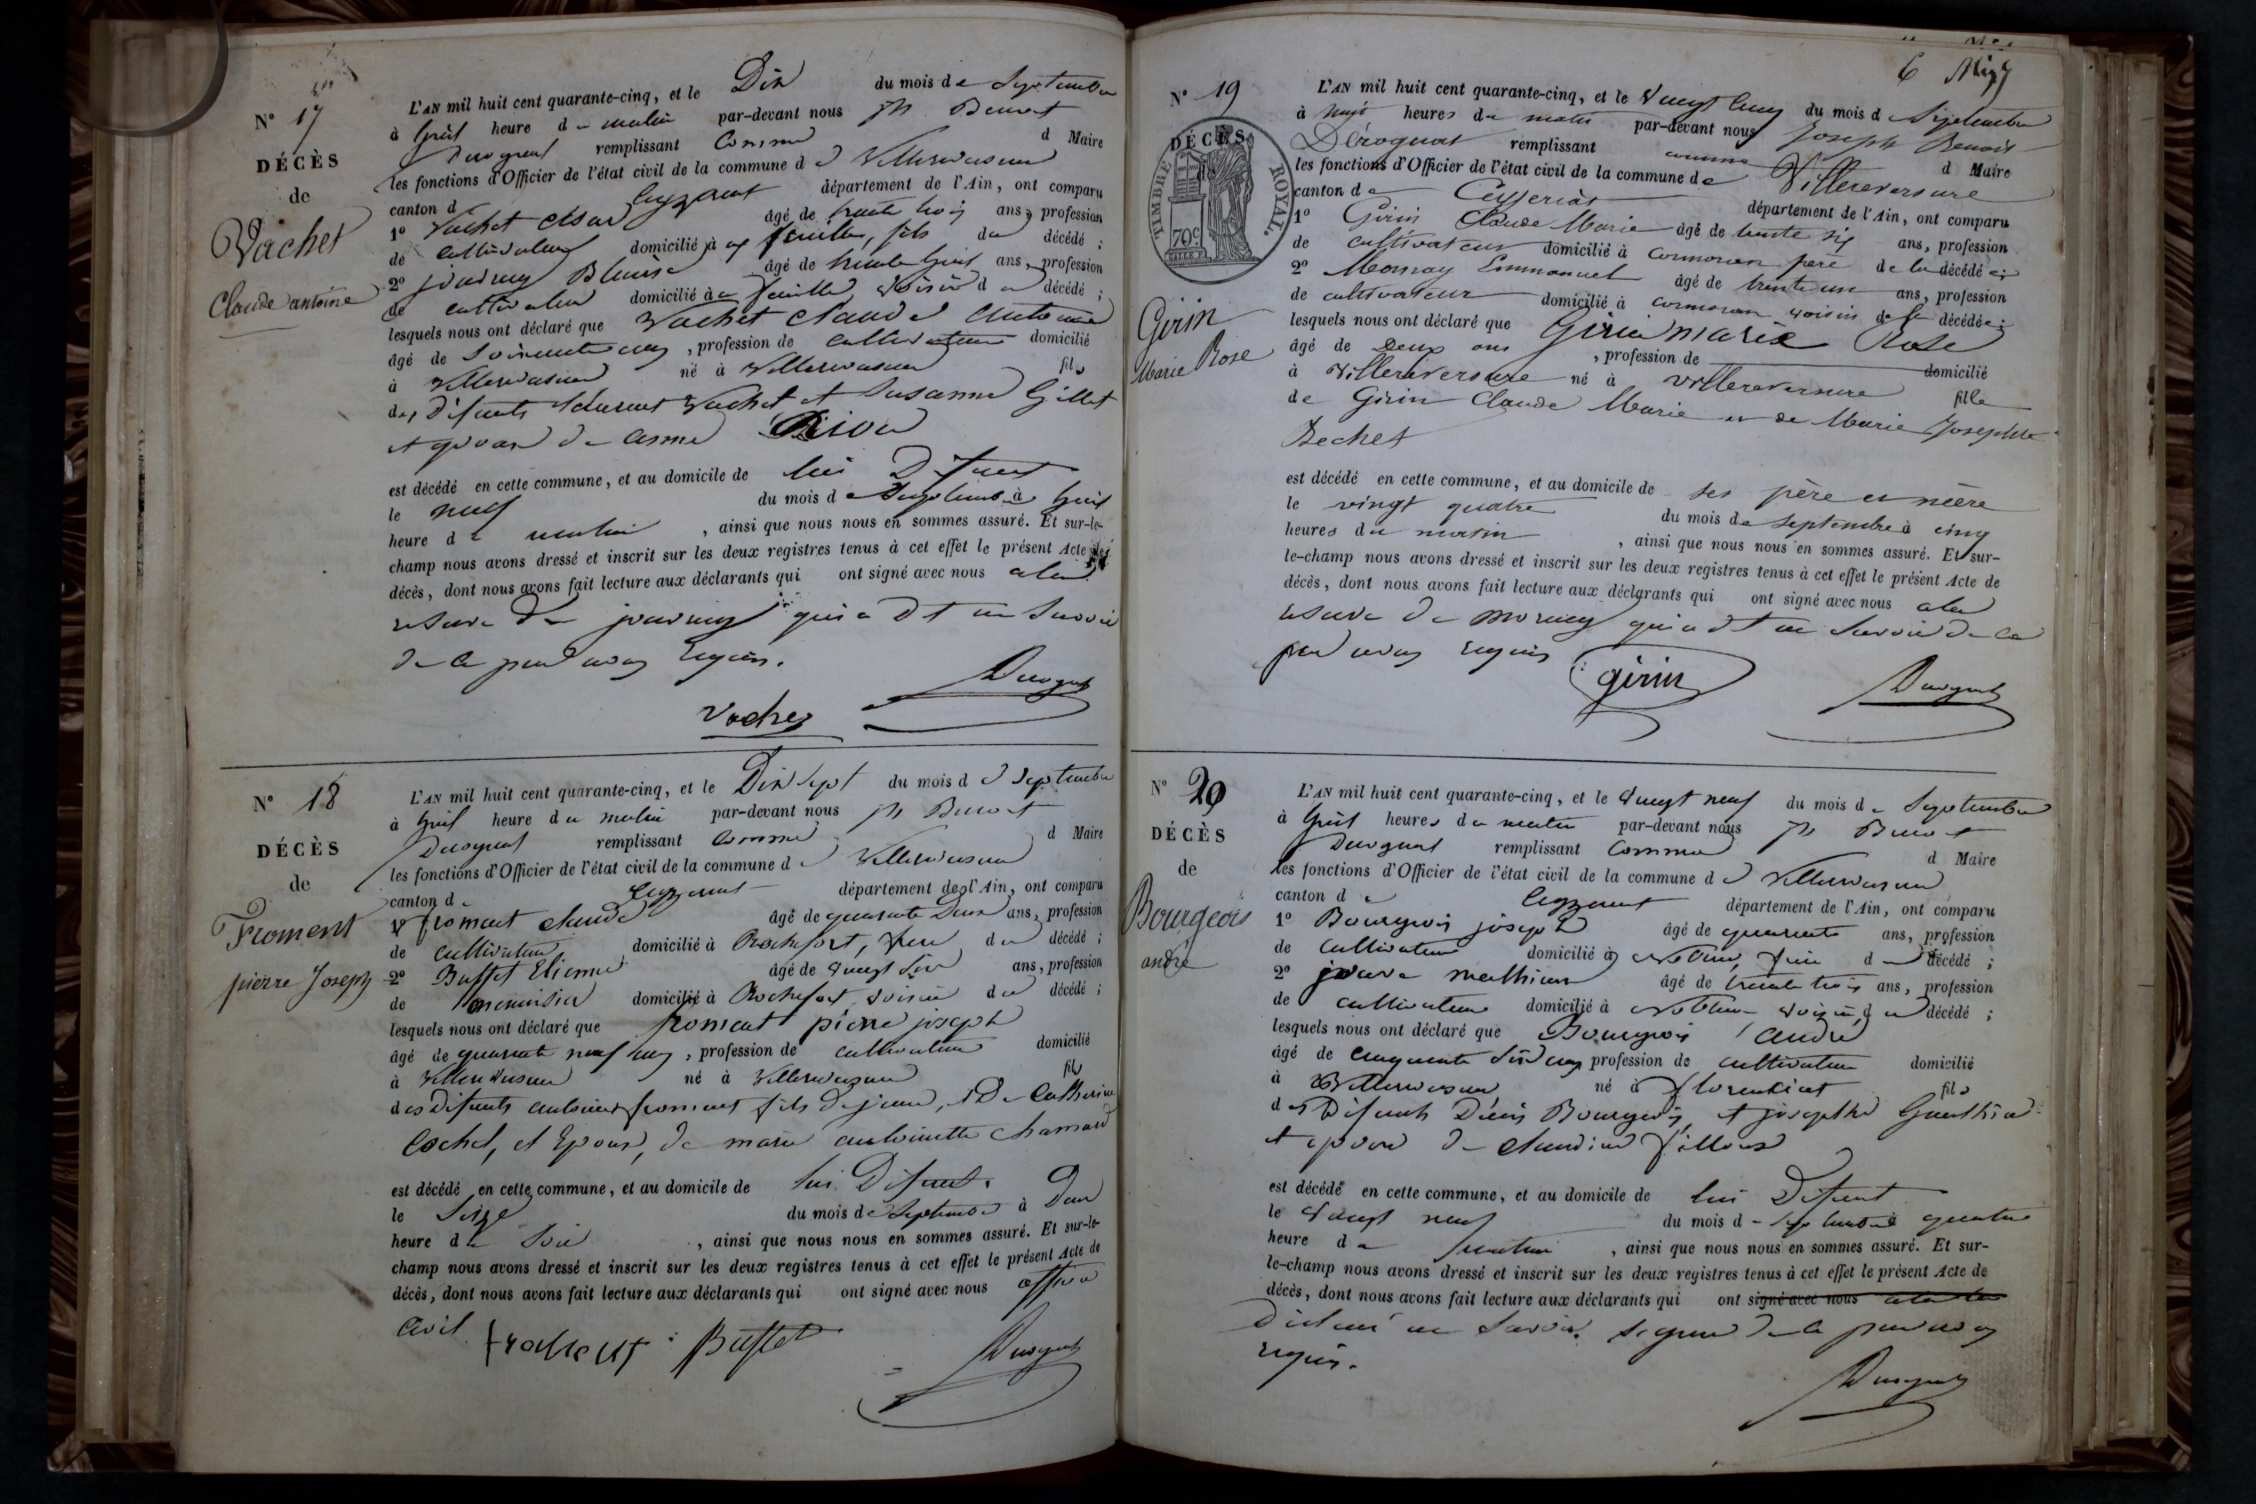 N° 17
DÉCÈS
de
Vachet
Claude antoine
L'AN mil huit cent quarante-cinq, et le Dix du mois de Septembre
à huit heure du matin par-devant nous Jh Benoit
Derognat remplissant Comme d Maire
les fonctions d'Officier de l'état civil de la commune de Villereversure
canton d Ceyzeriat département de l'Ain, ont comparu
1° Vachet César âgé de trente trois ans, profession
de cultivateur domicilié à fils du décédé ;
2° journey Blaise âgé de trente huit ans, profession
de cultivateur domicilié à voisin du décédé ;
lesquels nous ont déclaré que Vachet Claude Antoine
âgé de Soixante ans, profession de cultivateur domicilié
à Villereversure né à Villereversure fils
des Défunts Laurent Vachet et Susanne Gillet
et epoux de
est décédé en cette commune, et au domicile de lui Défunt
le neuf du mois de Septembre à huit
heure du matin, ainsi que nous nous en sommes assuré. Et sur-le-
champ nous avons dressé et inscrit sur les deux registres tenus à cet effet le présent Acte de
décès, dont nous avons fait lecture aux déclarants qui ont signé avec nous ala
reserve de journey qui a dit ne Savoir
de ce par nous requis.
Vachet Derognat
N° 18
DÉCÈS
de
Froment
pierre Joseph
L'AN mil huit cent quarante-cinq, et le Dix Sept du mois de Septembre
à huit heure du matin par-devant nous Jh Benoit
Derognat remplissant Comme d Maire
les fonctions d'Officier de l'état civil de la commune de Villereversure
canton de Ceyzeriat département de l'Ain, ont comparu
1° froment claude âgé de quarante Deux ans, profession
de cultivateur domicilié à Rochefort, frere du décédé ;
2° Buffet Etienne âgé de vingt Six ans, profession
de menuisier domicilié à Rochefort voisin du décédé ;
lesquels nous ont déclaré que froment pierre joseph
âgé de quarante neuf ans, profession de cultivateur domicilié
à Villereversure né à Villereversure fils
des Défunts antoine froment fils De jean, et De Catherine
Cochet, et Epoux, de marie antoinette chanard
est décédé en cette commune, et au domicile de lui Défunt.
le Seize du mois de Septembre à Deux
heure du Soir, ainsi que nous nous en sommes assuré. Et sur-le-
champ nous avons dressé et inscrit sur les deux registres tenus à cet effet le présent Acte de
décès, dont nous avons fait lecture aux déclarants qui ont signé avec nous officier
Civil.
froment Buffet Derognat
6 Mizy
N° 19
DÉCÈS
de
TIMBRE ROYAL.
70c
Girin
Marie Rose
L'AN mil huit cent quarante-cinq, et le Vingt Cinq du mois d Septembre
à huit heures du matin par-devant nous Joseph Benoit
Dérognat remplissant comme d Maire
les fonctions d'Officier de l'état civil de la commune de Villereversure
canton de Ceyseriat département de l'Ain, ont comparu
1° Girin Claude Marie âgé de trente six ans, profession
de cultivateur domicilié à cormoran père de la décédée ;
2° Mornay Emmanuel âgé de trente un ans, profession
de cultivateur domicilié à cormoran voisin de la décédée ;
lesquels nous ont déclaré que Girin Marie Rose
âgé de Deux ans, profession de domicilié
à Villereversure né à Villereversure fille
de Girin Claude Marie et de Marie Josephte
Bechet
est décédé en cette commune, et au domicile de ses père et mère
le vingt quatre du mois de septembre à cinq
heures du matin, ainsi que nous nous en sommes assuré. Et sur-
le-champ nous avons dressé et inscrit sur les deux registres tenus à cet effet le présent Acte de
décès, dont nous avons fait lecture aux déclarants qui ont signé avec nous ala
reserve De Mornay qui a dit ne Savoir de ce
par nous requis
girin Derognat
N° 20
DÉCÈS
de
Bourgeois
andré
L'AN mil huit cent quarante-cinq, et le Vingt neuf du mois de Septembre
à huit heures du matin par-devant nous Jh Benoit
Derognat remplissant Comme d Maire
les fonctions d'Officier de l'état civil de la commune de Villereversure
canton de Ceyzeriat département de l'Ain, ont comparu
1° Bourgeois joseph âgé de quarante ans, profession
de cultivateur domicilié à du décédé ;
2° mathieu âgé de trente trois ans, profession
de cultivateur domicilié à voisin, du décédé ;
lesquels nous ont déclaré que Bourgeois André
âgé de cinquante Six ans profession de cultivateur domicilié
à Villereversure né à florentiat fils
des Défunts Dénis Bourgeois, et josephte Gauthier
et epoux de claudine fillioux
est décédé en cette commune, et au domicile de lui Défunt
le Vingt neuf du mois de Septembre à quatre
heure du matin, ainsi que nous nous en sommes assuré. Et sur-
le-champ nous avons dressé et inscrit sur les deux registres tenus à cet effet le présent Acte de
décès, dont nous avons fait lecture aux déclarants qui ont signé avec nous
Déclaré ne Savoir Signer de ce par nous
requis.
Derognat